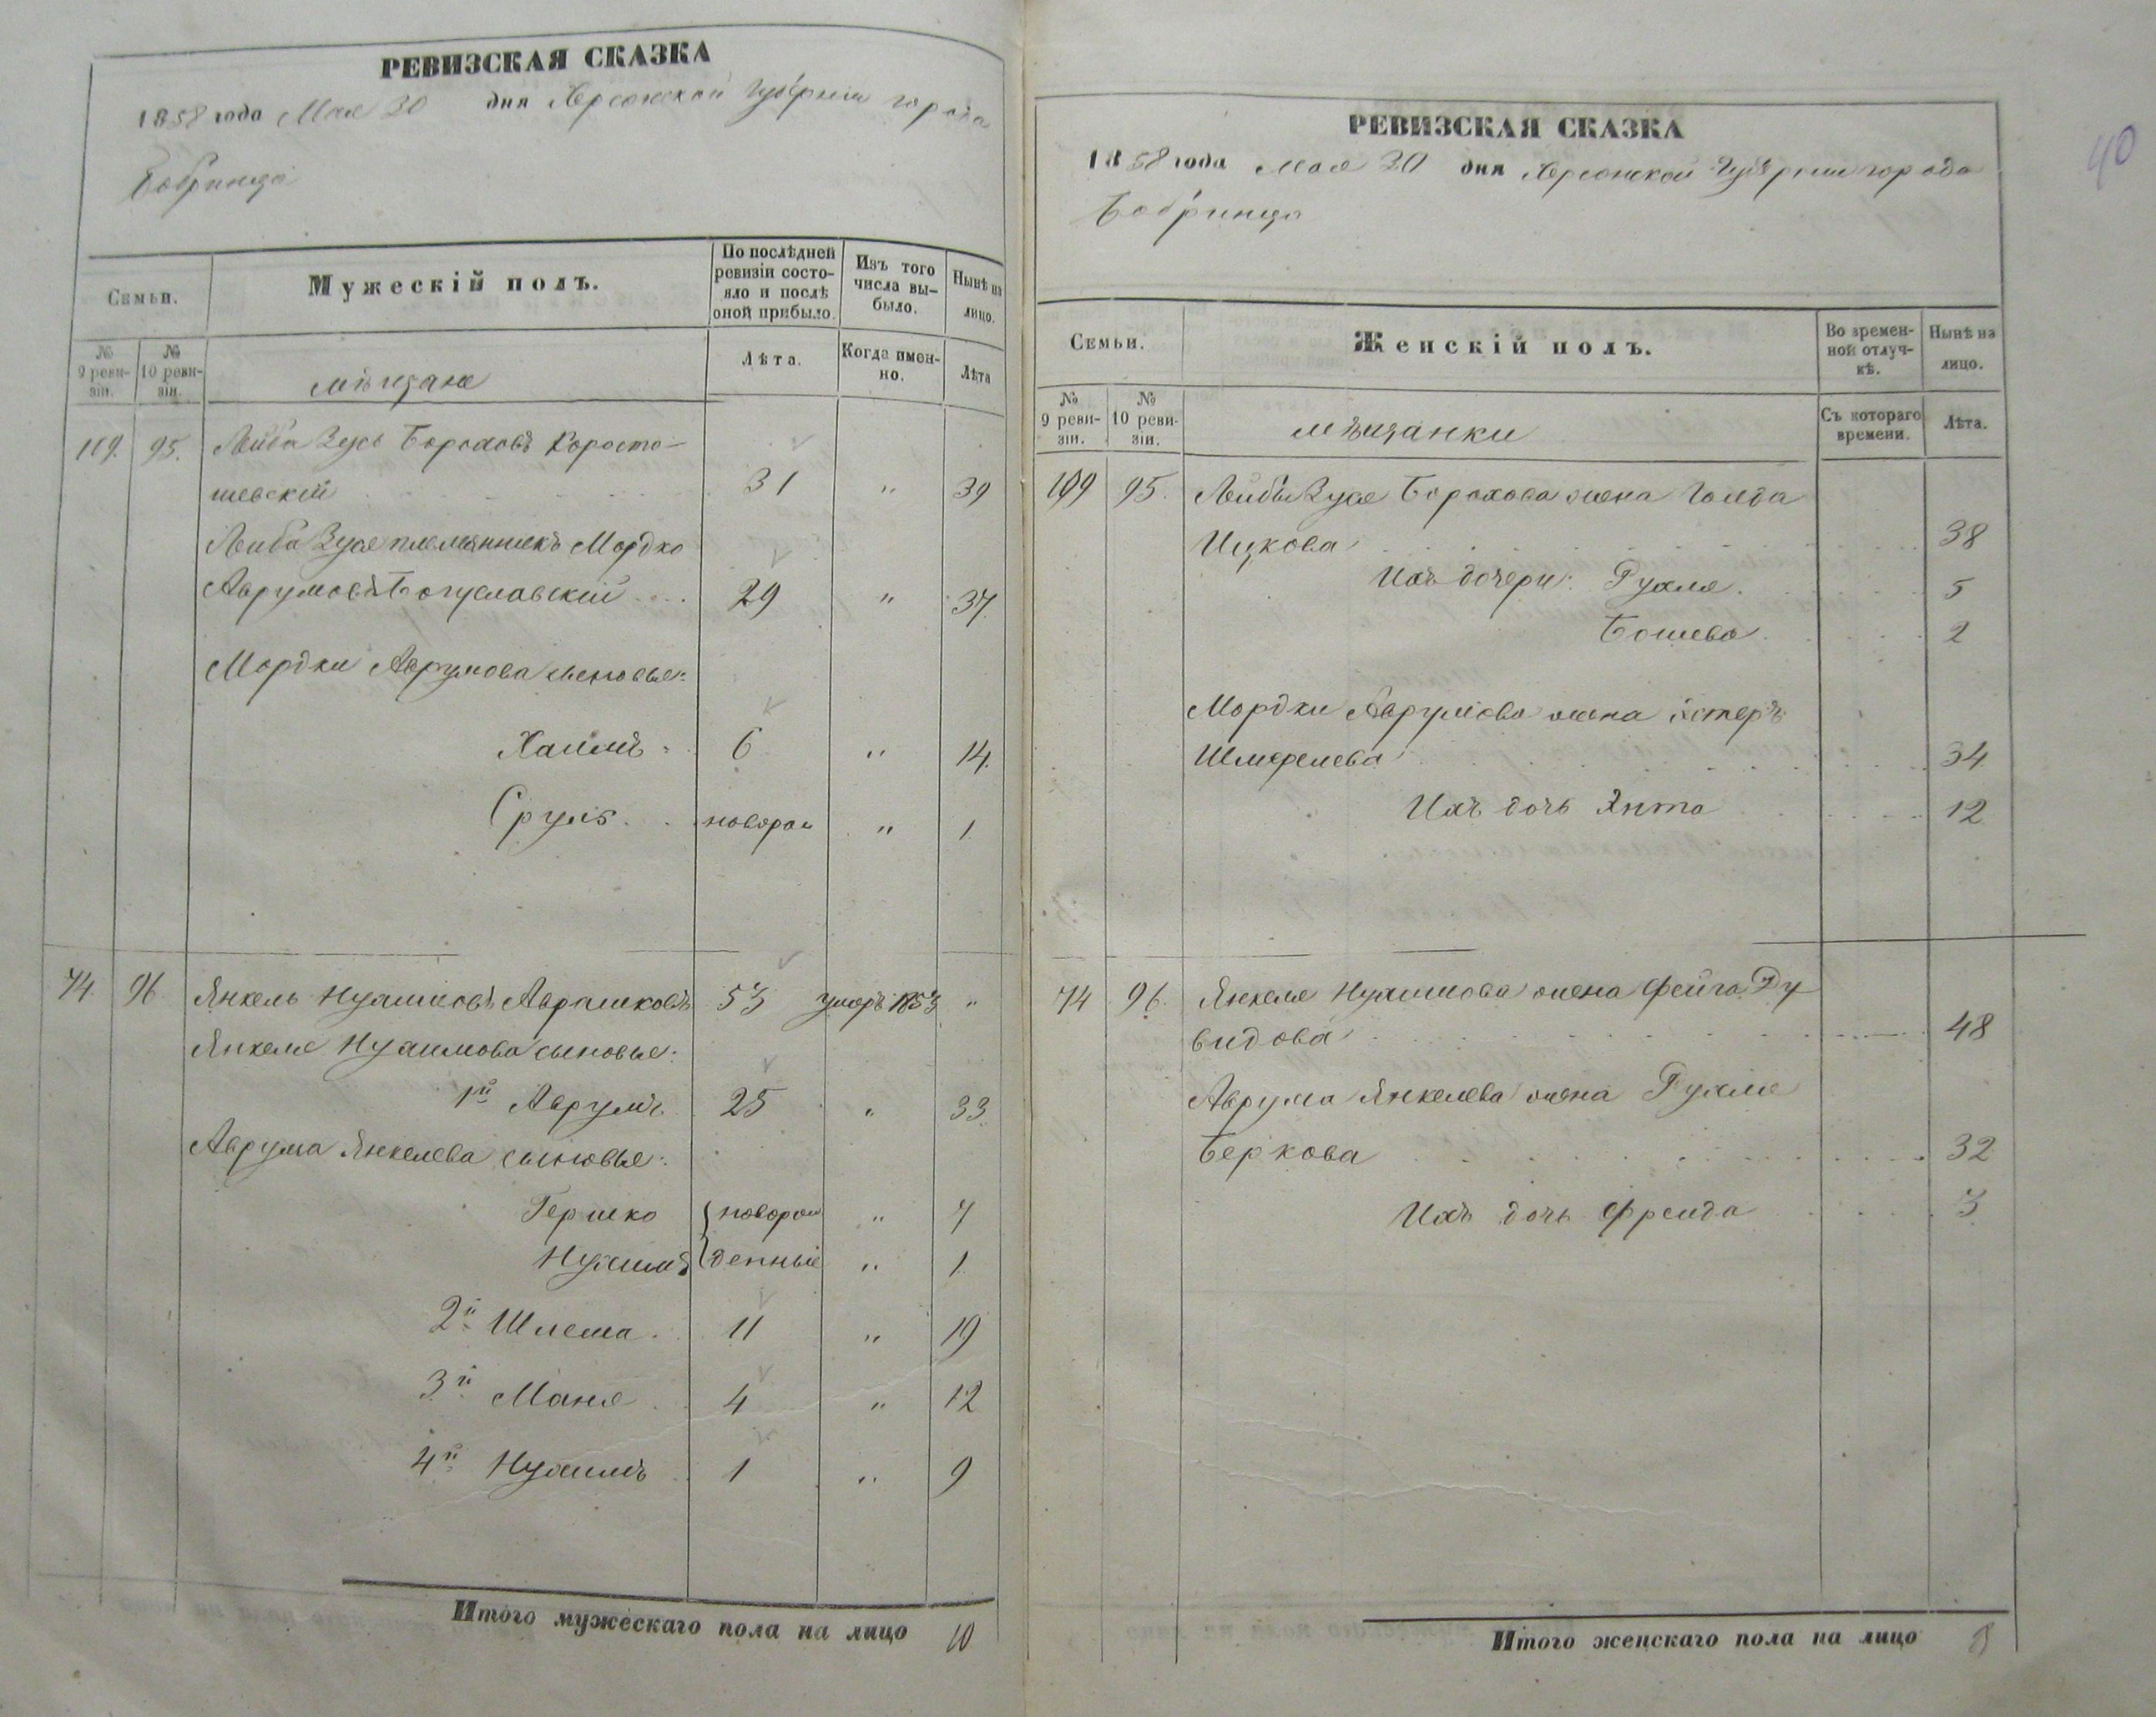 РЕВИЗСКАЯ СКАЗКА
1858 года Мая 30 дня Херсонской Губерніи города
Бобринца
Семьи.
Мужескій полъ.
По послѣдней ревизіи состо-
яло и послѣ оной прибыло.
Изъ того числа вы-
было.
Нынѣ на лицо.
№ 9 реви-
зіи.
№ 10 реви-
зіи.
мѣщане
Лѣта.
Когда имен-
но.
Лѣта
109. 95. Лейба Зусь Бороховъ Коросты-
шевскій 31 " 39
Лейба Зуся племянникъ Мордко
Аврумовъ Богуславскій 29 " 37
Мордки Аврумова сыновья:
Хаимъ 6 " 14
Сруль новорож " 1
74. 96 Янкель Нухимовъ Аврашковъ 53 умеръ 1853 "
Янкеля Нухимова сыновья:
1й Аврумъ 25 " 33
Аврума Янкелева сыновья:
Гершко новорож " 7
Нухимъ денные " 1
2й Шлема 11 " 19
3й Маня 4 " 12
4й Нухимъ 1 " 9
Итого мужескаго пола на лицо 10
40
РЕВИЗСКАЯ СКАЗКА
1858 года Мая 30 дня Херсонской Губерніи города
Бобринца
Семьи.
Женскій полъ.
Во времен-
ной отлуч-
кѣ.
Нынѣ на лицо.
№ 9 реви-
зіи.
№ 10 реви-
зіи.
мѣщанки
Съ котораго времени.
Лѣта.
109 95. Лейбы Зуся Борохова жена Голда
Ицкова 38
Ихъ дочери: Рухля 5
Бошева 2
Мордки Аврумова жена Эстеръ
Шмерелева 34
Ихъ дочь Янта 12
74 96. Янкеля Нухимова жена Фейга Ду
видова 48
Аврума Янкелева жена Рухля
Беркова 32
Ихъ дочь Фрейда 3
Итого женскаго пола на лицо 8